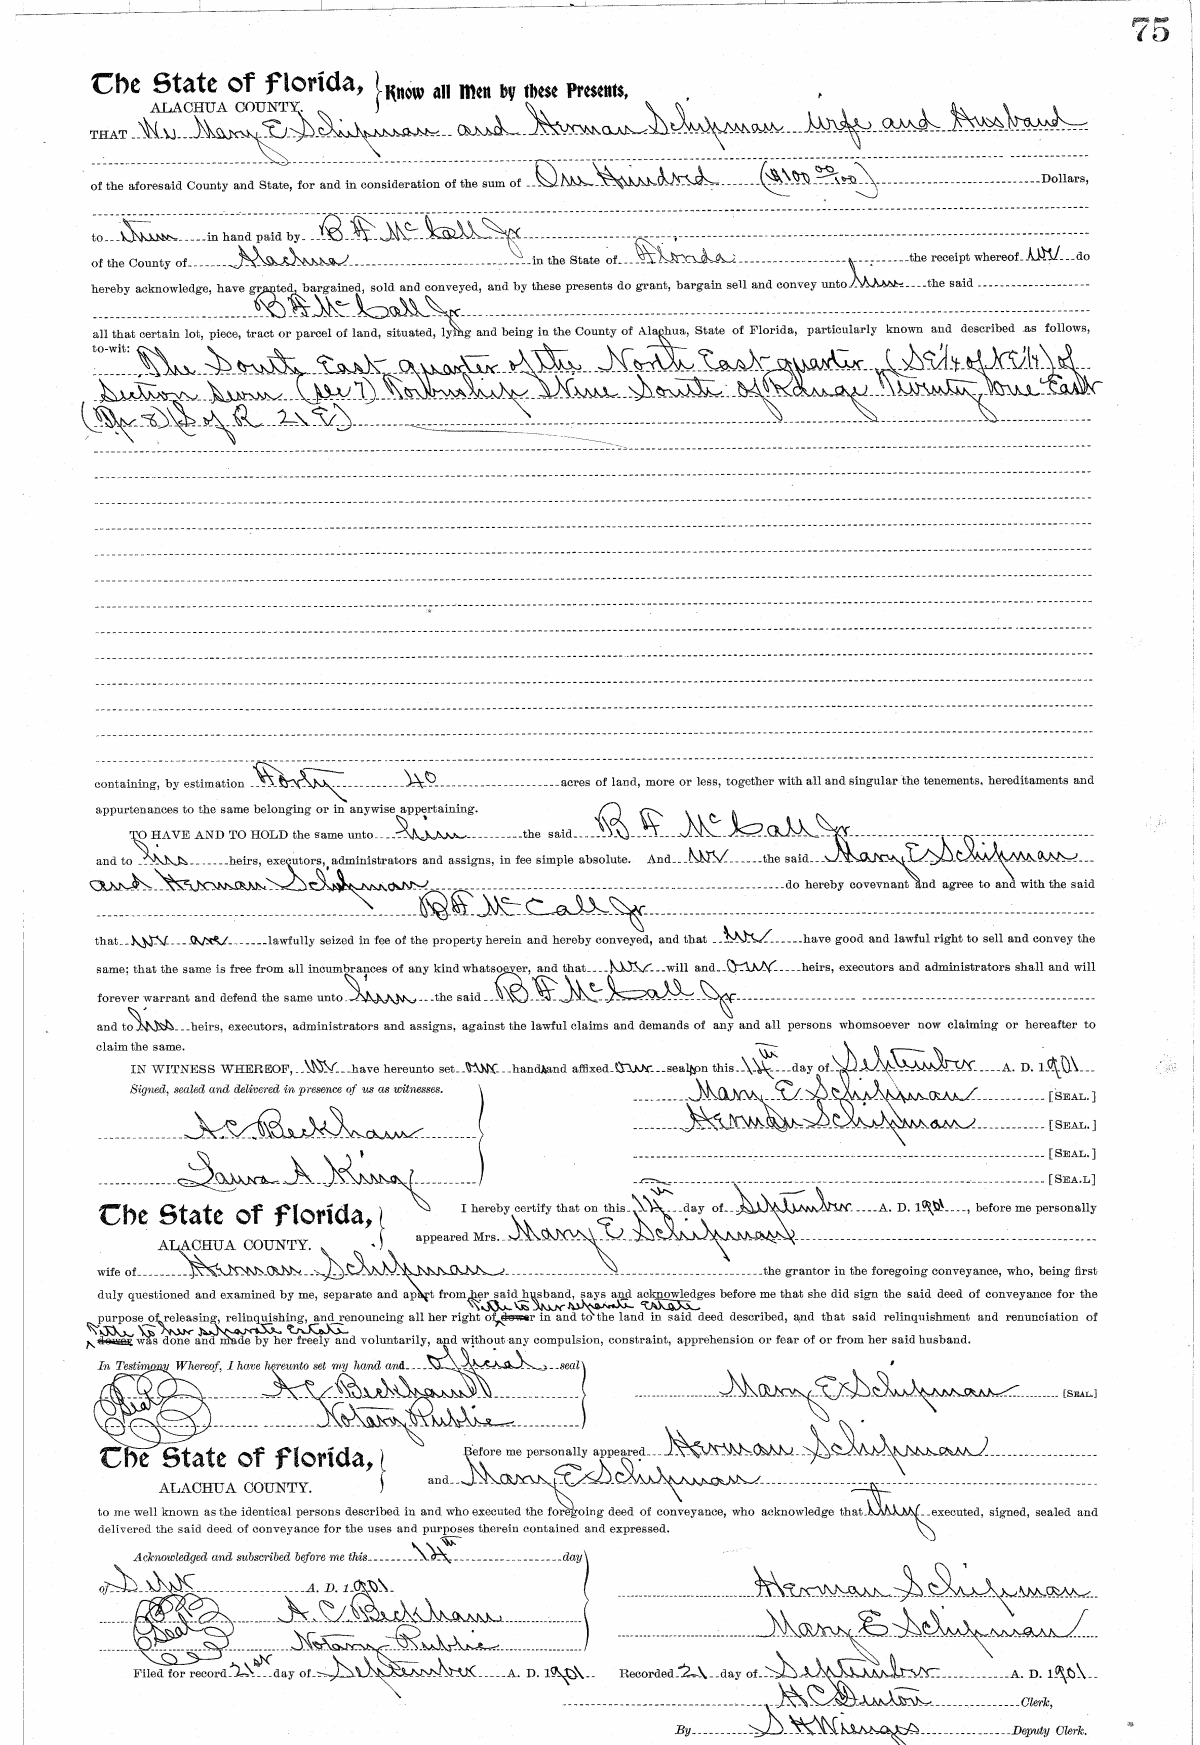 75
The State of Florida, } Know all Men by these Presents,
ALACHUA COUNTY.
THAT We Mary E Schipman and Herman Schipman Wife and Husband
of the aforesaid County and State, for and in consideration of the sum of One Hundred ($100 00/100) Dollars,
to them in hand paid by B F McCall Jr
of the County of Alachua in the State of Florida the receipt whereof we do
hereby acknowledge, have granted, bargained, sold and conveyed, and by these presents do grant, bargain sell and convey unto him the said
B F McCall Jr
all that certain lot, piece, tract or parcel of land, situated, lying and being in the County of Alachua, State of Florida, particularly known and described as follows,
to-wit: The South East quarter of the North East quarter (SE1/4 of NE1/4) of
Section Seven (sec 7) Township Nine South of Range Twenty One East
(Tp 8) S of R 21 E)
containing, by estimation Forty 40 acres of land, more or less, together with all and singular the tenements, hereditaments and
appurtenances to the same belonging or in anywise appertaining.
TO HAVE AND TO HOLD the same unto him the said B F McCall Jr
and to his heirs, executors, administrators and assigns, in fee simple absolute. And we the said Mary E Schipman
and Herman Schipman do hereby covevnant and agree to and with the said
B F McCall Jr
that we are lawfully seized in fee of the property herein and hereby conveyed, and that we have good and lawful right to sell and convey the
same; that the same is free from all incumbrances of any kind whatsoever, and that we will and our heirs, executors and administrators shall and will
forever warrant and defend the same unto him the said B F McCall Jr
and to his heirs, executors, administrators and assigns, against the lawful claims and demands of any and all persons whomsoever now claiming or hereafter to
claim the same.
IN WITNESS WHEREOF, we have hereunto set our hands and affixed our seals on this 14th day of September A. D. 1901
Signed, sealed and delivered in presence of us as witnesses. Mary E Schipman [SEAL.]
A.C. Beckham Herman Schipman [SEAL.]
[SEAL.]
Laura A King [SEA.L]
The State of Florida, } I hereby certify that on this 14th day of September A. D. 1901, before me personally
ALACHUA COUNTY. appeared Mrs. Mary E Schipman
wife of Herman Schipman the grantor in the foregoing conveyance, who, being first
duly questioned and examined by me, separate and apart from her said husband, says and acknowledges before me that she did sign the said deed of conveyance for the
Title to her separate Estate
purpose of releasing, relinquishing, and renouncing all her right of dower in and to the land in said deed described, and that said relinquishment and renunciation of
Title to her separate Estate
dower was done and made by her freely and voluntarily, and without any compulsion, constraint, apprehension or fear of or from her said husband.
In Testimony Whereof, I have hereunto set my hand and official seal
Seal A C Beckham Mary E Schipman [SEAL.]
Notary Public
The State of Florida, } Before me personally appeared Herman Schipman
ALACHUA COUNTY. and Mary E Schipman
to me well known as the identical persons described in and who executed the foregoing deed of conveyance, who acknowledge that they executed, signed, sealed and
delivered the said deed of conveyance for the uses and purposes therein contained and expressed.
Acknowledged and subscribed before me this 14th day
of Sept A. D. 1901 Herman Schipman
Seal A. C Beckham Mary E Schipman
Notary Public
Filed for record 21st day of September A. D. 1901 Recorded 21 day of September A. D. 1901
H C Denton Clerk,
By S H Wienges Deputy Clerk.